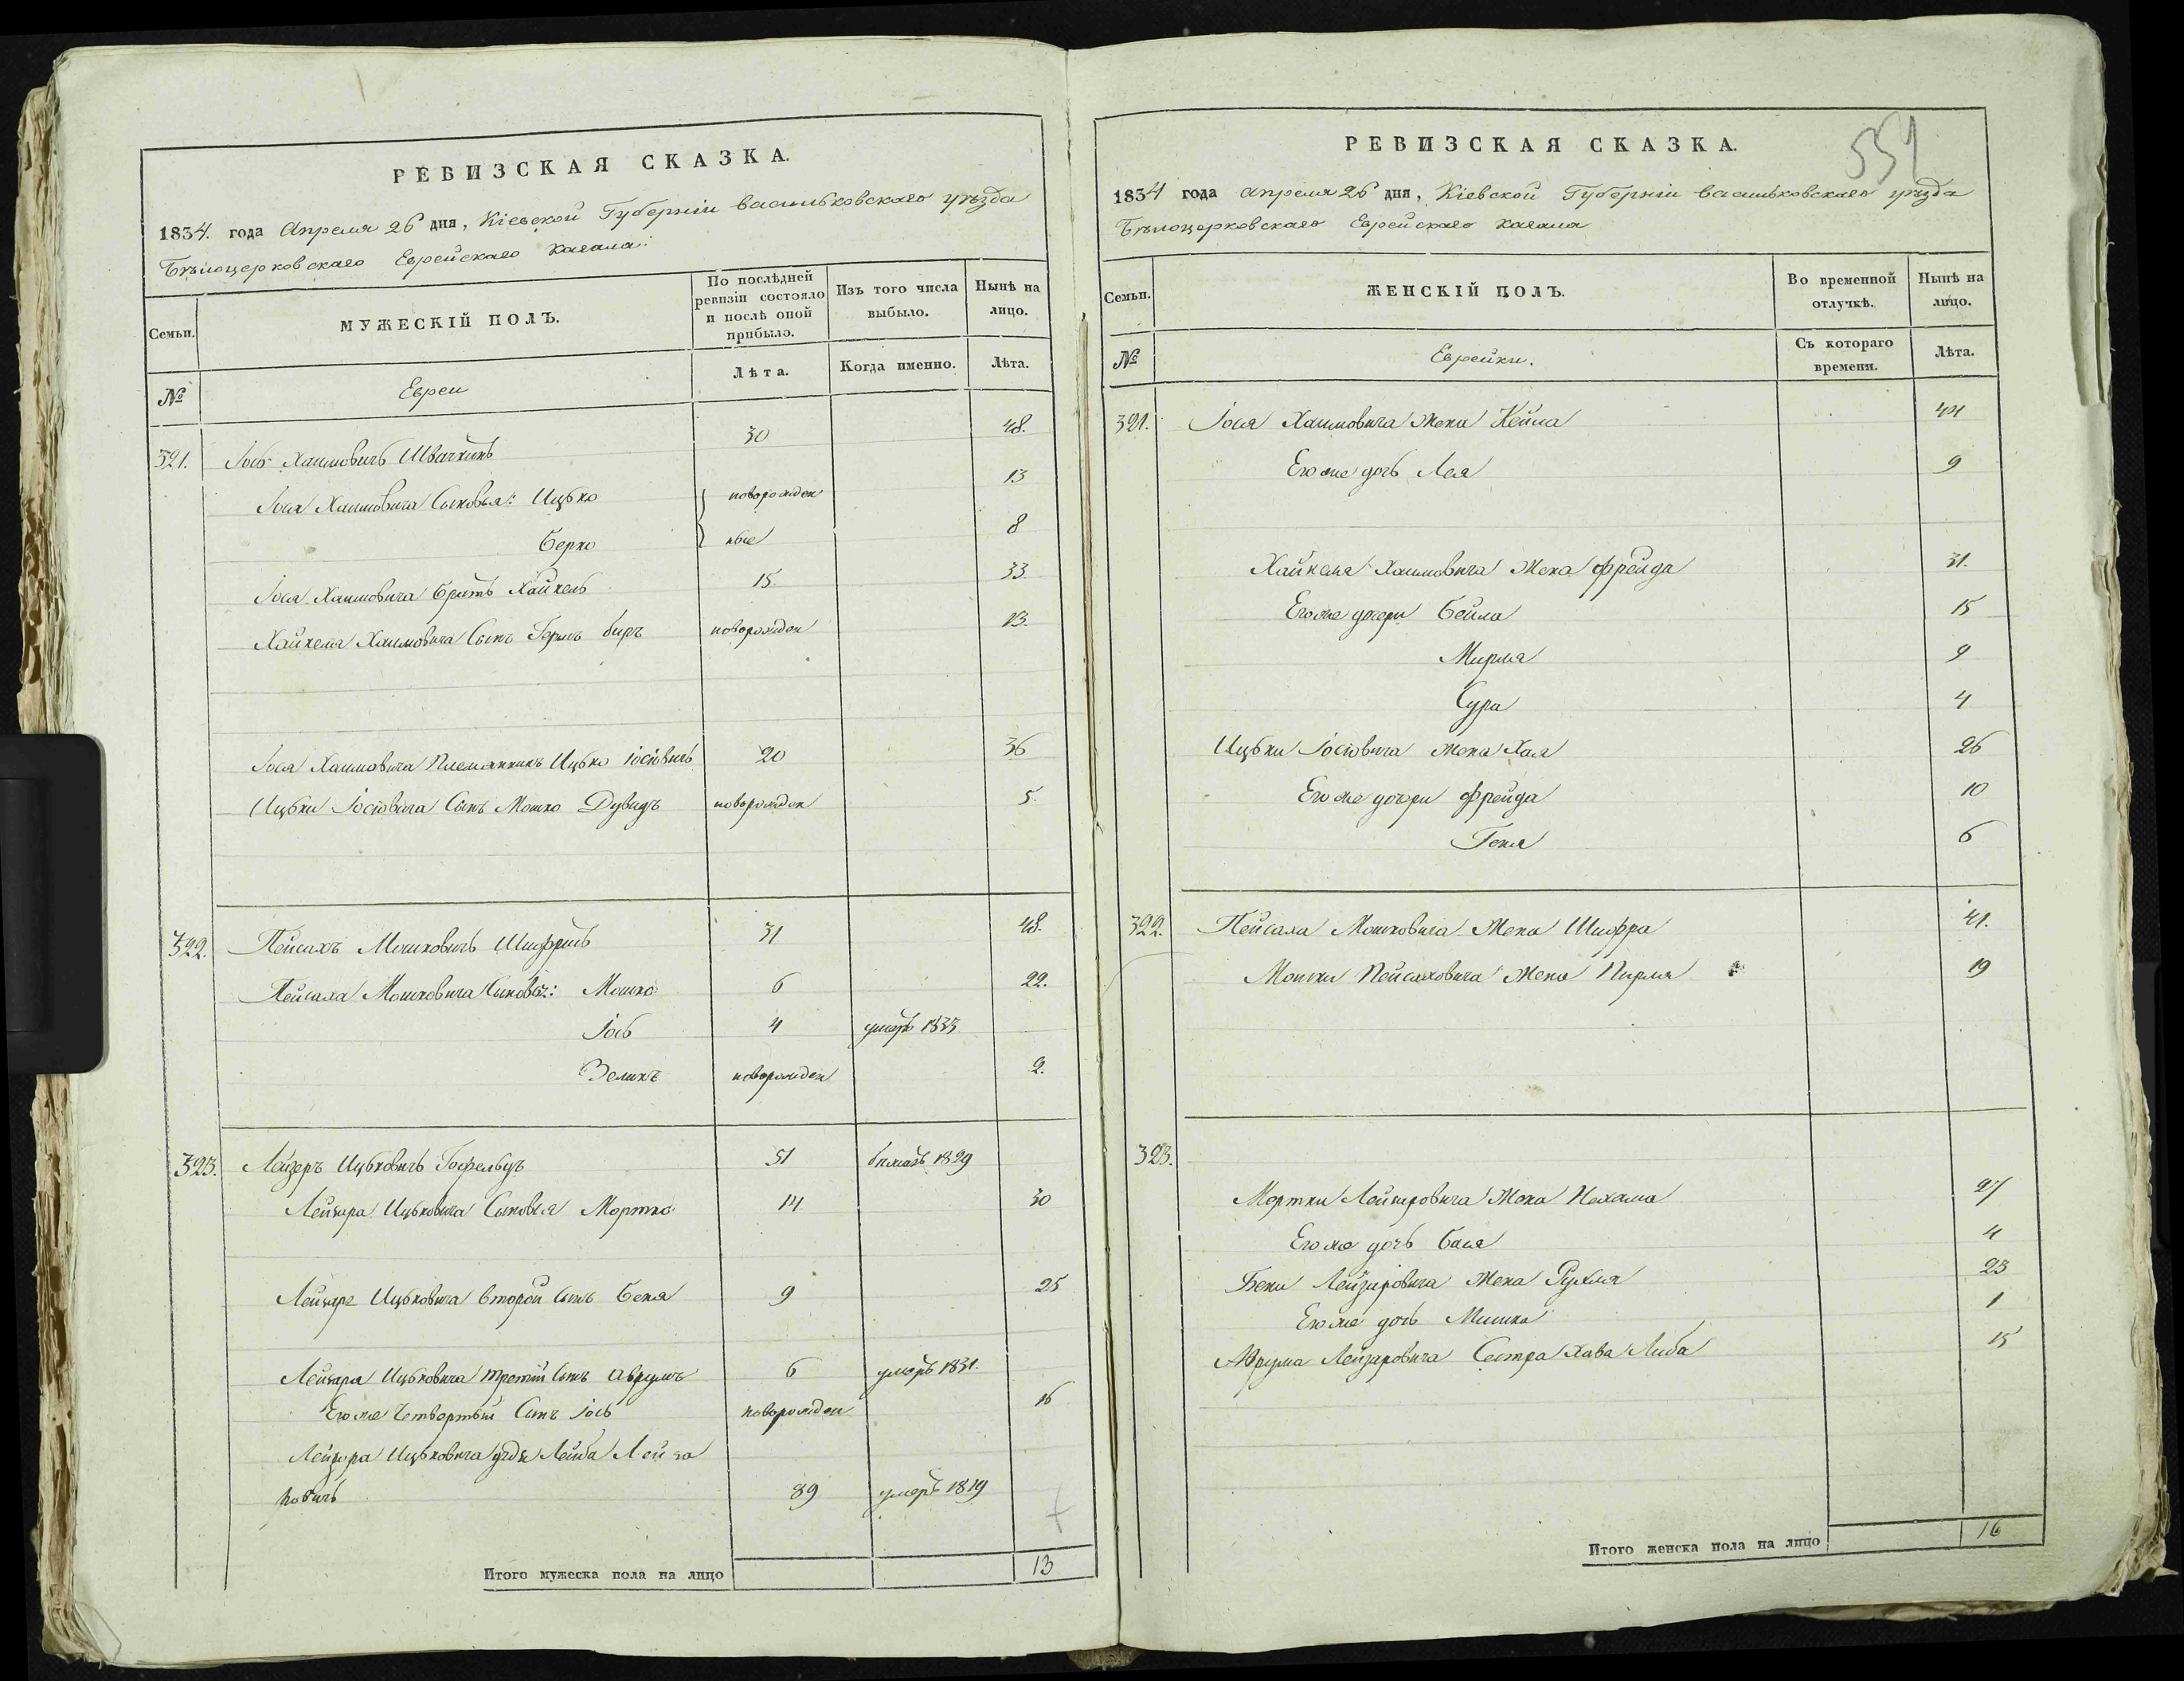 РЕВИЗСКАЯ СКАЗКА.
1834. года Апреля 26 дня, Кіевской Губерніи Васильковскаго уѣзда
Бѣлоцерковскаго Еврейскаго Кагала:
Семьи.
МУЖЕСКІЙ ПОЛЪ.
По послѣдней ревизіи состояло и послѣ оной прибыло.
Изъ того числа выбыло.
Нынѣ на лицо.
№
Евреи
Лѣта.
Когда именно.
Лѣта.
321. Іось Хаимовичь 30 48.
Іося Хаимовича Сыновья: Ицько новорожден 13
Берко ные 8
Іося Хаимовича братъ Хайкель 15. 33.
Хайкеля Хаимовича Сынъ новорожден 13.
Іося Хаимовича Племянникъ Ицько Іосіовичь 20 36
Ицьки Іосіовича Сынъ Мошко Дувидъ новорожден 5.
322. Пейсахъ Мошковичь Шифринъ 31 48.
Пейсаха Мошковича Сыновья: Мошко 6 22.
Іось 4 умеръ 1833
Зеликъ новорожден 2.
323. Лейзеръ Ицьковичь 51 1829
Лейзера Ицьковича Сыновья Мортко 14 30
Лейзера Ицьковича второй сынъ Беня 9 25
Лейзера Ицьковича третій сынъ Аврумъ 6 умеръ 1831.
Его же Четвертый Сынъ Іось новорожден 16
Лейзера Ицьковича дядя Лейба Лейза
ровичь 89 умеръ 1819
Итого мужеска пола на лицо 13
РЕВИЗСКАЯ СКАЗКА.
1834 года Апреля 26 дня, Кіевской Губерніи Васильковскаго уѣзда
Бѣлоцерковскаго Еврейскаго Кагала
Семьи.
ЖЕНСКІЙ ПОЛЪ.
Во временной отлучкѣ.
Нынѣ на лицо.
№
Еврейки.
Съ котораго времени.
Лѣта.
321. Іося Хаимовича Жена Кейла 44
Его же дочь Лея 9
Хайкеля Хаимовича Жена Фрейда 31.
Его же дочери Бейла 15
Мирля 9
Сура 4
Ицьки Іосіовича жена Хая 26
Его же дочери Фрейда 10
Геня 6
322. Пейсаха Мошковича Жена Шифра 41.
Мошки Пейсаховича Жена Пирля 19
323.
Мортки Лейзеровича Жена Нехама 27
Его же дочь Бася 4
Бени Лейзаровича Жена Рухля 23
Его же дочь 1
Аврума Лейзаровича Сестра Хава Либа 15
Итого женска пола на лицо 16